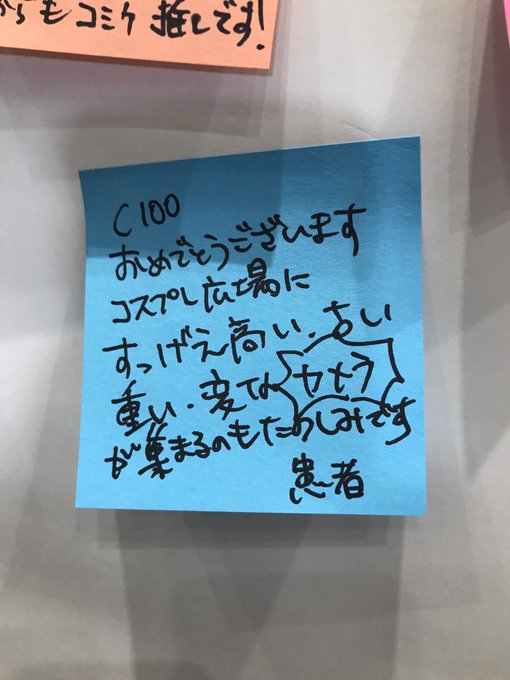 からもコミケ推しです!
C100
おめでとうございます
コスプレ広場に
すっげえ高い、古い
重い・変なカメラ
が集まるのもたのしみです
患者